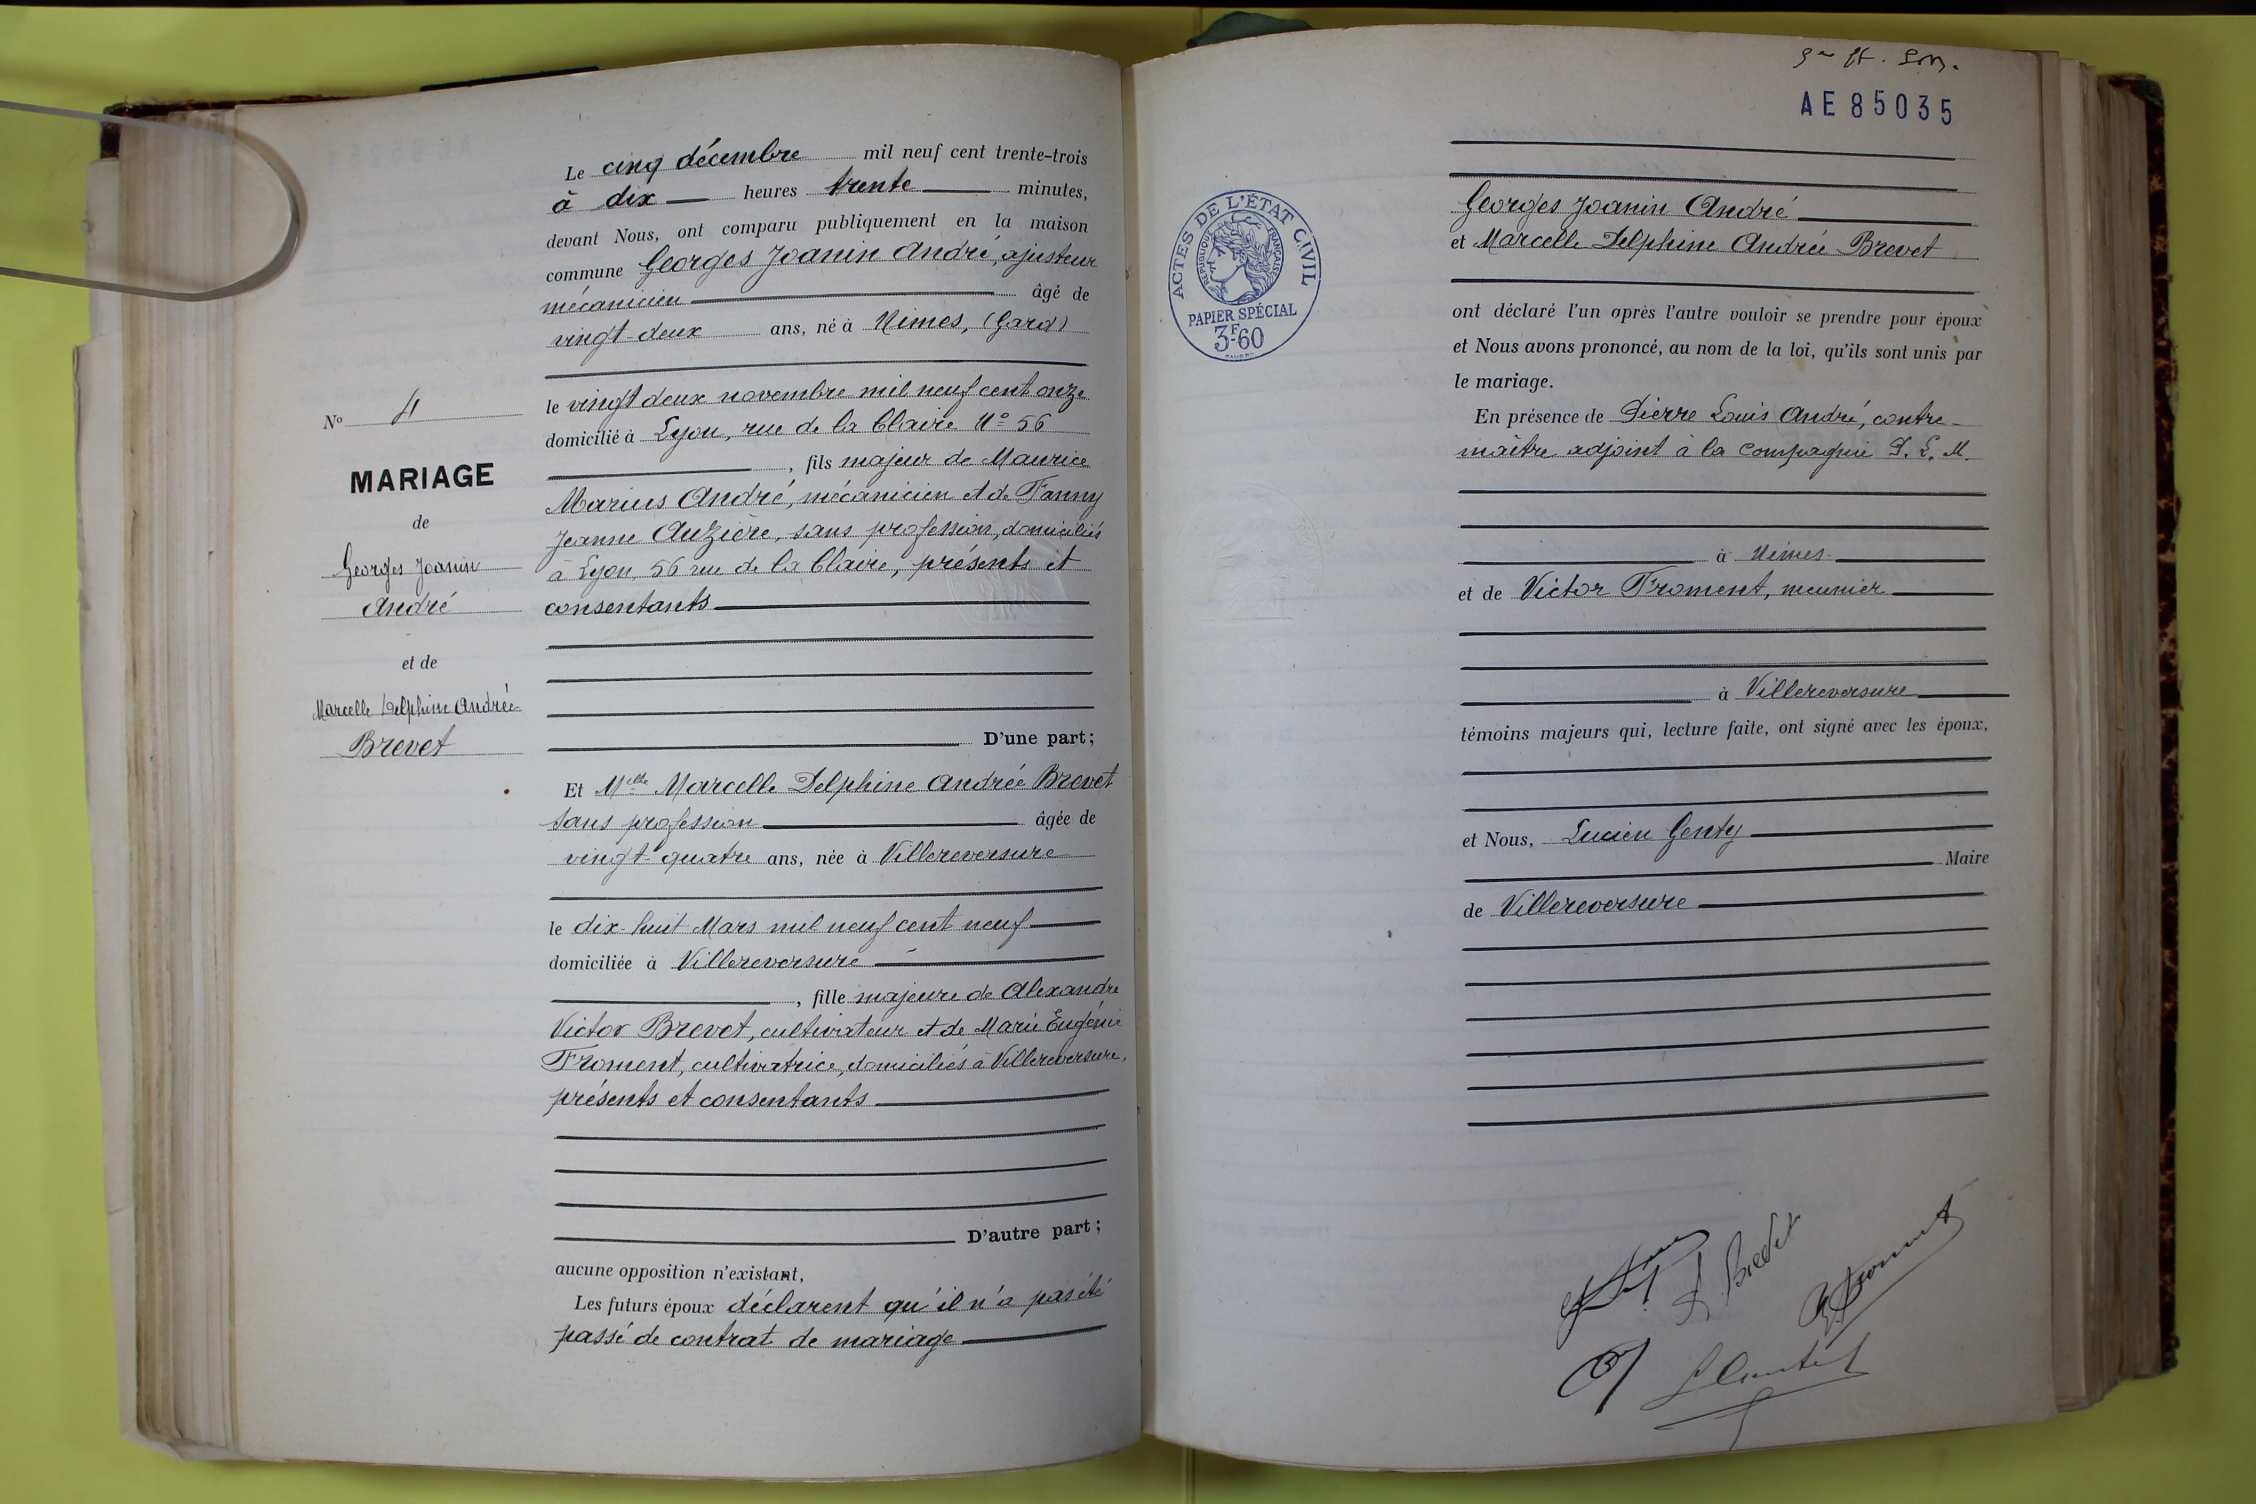 Le cinq décembre mil neuf cent trente-trois
à dix heures trente minutes,
devant Nous, ont comparu publiquement en la maison
commune Georges Joanin André, ajusteur
mécanicien âgé de
vingt-deux ans, né à Nimes, (Gard)
le vingt deux novembre mil neuf cent onze
domicilié à Lyon, rue de la Claire N° 56
, fils majeur de Maurice
Marius André, mécanicien et de Fanny
Jeanne Auzière, sans profession, domiciliés
à Lyon, 56 rue de la Claire, présents et
consentants
D'une part;
Et Melle Marcelle Delphine Andrée Brevet
sans profession âgée de
vingt-quatre ans, née à Villereversure
le dix-huit Mars mil neuf cent neuf
domiciliée à Villereversure
, fille majeure de Alexandre
Victor Brevet, cultivateur et de Marie Eugénie
Froment, cultivatrice, domiciliés à Villereversure,
présents et consentants
D'autre part;
aucune opposition n'existant,
Les futurs époux déclarent qu'il n'a pas été
passé de contrat de mariage
No 4
MARIAGE
de
Georges Joanin
André
et de
Marcelle Delphine Andrée
Brevet
AE 85035
ACTES DE L'ÉTAT CIVIL
RÉPUBLIQUE FRANÇAISE
PAPIER SPÉCIAL
3F60
Georges Joanin André
et Marcelle Delphine Andrée Brevet
ont déclaré l'un après l'autre vouloir se prendre pour époux
et Nous avons prononcé, au nom de la loi, qu'ils sont unis par
le mariage.
En présence de Pierre Louis André, contre-
maître adjoint à la compagnie P. L. M.
à Nimes
et de Victor Froment, meunier
à Villereversure
témoins majeurs qui, lecture faite, ont signé avec les époux,
et Nous, Lucien Genty
Maire
de Villereversure
Brevet
Froment